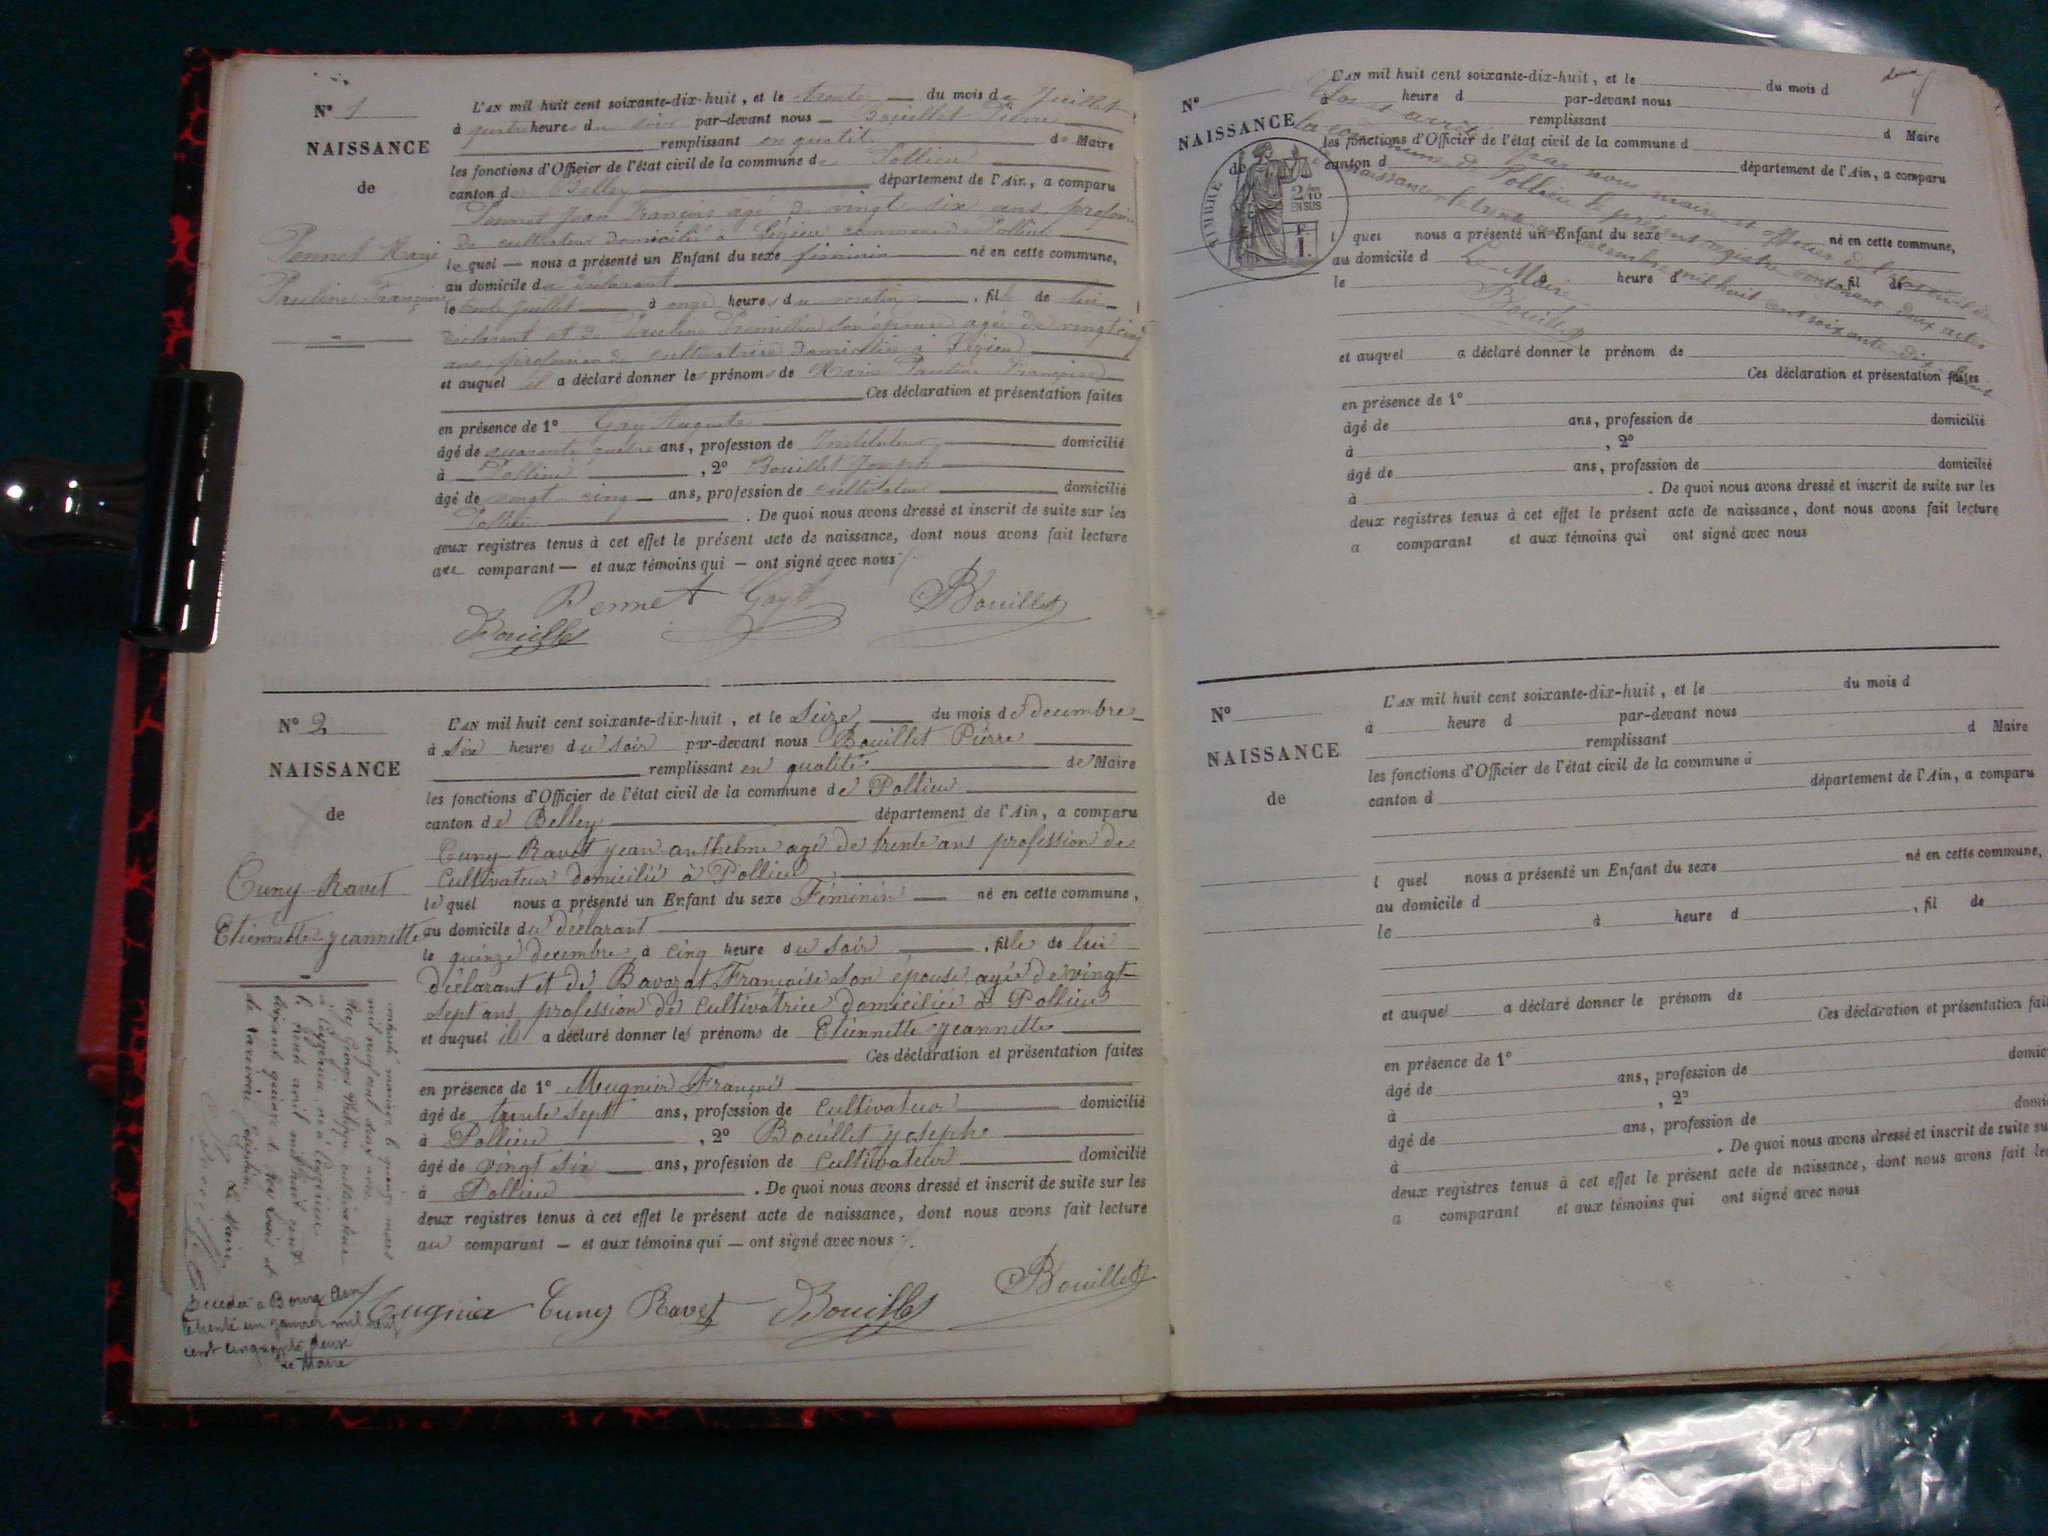 N° 1
NAISSANCE
de
Pennet Marie
Pauline Françoise
L'AN mil huit cent soixante-dix-huit, et le trente du mois de Juillet
à quatre heures du soir par-devant nous Bouillet Pierre
remplissant en qualité de Maire
les fonctions d'Officier de l'état civil de la commune de Pollieu
canton de Belley département de l'Ain, a comparu
Pennet Jean François agé de vingt six ans, profession
de cultivateur domicilié à Légieu commune de Pollieu
le quel — nous a présenté un Enfant du sexe féminin né en cette commune,
au domicile du déclarant
le trente Juillet à onze heures du matin, fille de lui
déclarant et de Pauline son épouse agée de vingt cinq
ans, profession de cultivatrice domiciliée à Légieu
et auquel il a déclaré donner les prénoms de Marie Pauline Françoise
Ces déclaration et présentation faites
en présence de 1° Gay Auguste
âgé de quarante quatre ans, profession de Instituteur domicilié
à Pollieu, 2° Bouillet Joseph
âgé de vingt cinq ans, profession de cultivateur domicilié
Pollieu. De quoi nous avons dressé et inscrit de suite sur les
deux registres tenus à cet effet le présent acte de naissance, dont nous avons fait lecture
au comparant — et aux témoins qui — ont signé avec nous
Pennet Gay Bouillet
Bouillet
N° 2
NAISSANCE
de
Cuny-Ravet
Etiennette-Jeannette
L'AN mil huit cent soixante-dix-huit, et le Seize du mois de decembre
à six heures du soir par-devant nous Bouillet Pierre
remplissant en qualité de Maire
les fonctions d'Officier de l'état civil de la commune de Pollieu
canton de Belley département de l'Ain, a comparu
Cuny-Ravet jean anthelme agé de trente ans profession de
Cultivateur domicilié à Pollieu
le quel nous a présenté un Enfant du sexe Féminin né en cette commune,
au domicile du déclarant
le quinze decembre à cinq heure du soir, fille de lui
déclarant et de Bavozat Françoise son épouse agée de vingt
sept ans, profession de cultivatrice domiciliée à Pollieu
et auquel il a déclaré donner les prénoms de Etiennette jeannette
Ces déclaration et présentation faites
en présence de 1° Mugnier François
âgé de trente sept ans, profession de cultivateur domicilié
à Pollieu, 2° Bouillet joseph
âgé de vingt six ans, profession de cultivateur domicilié
à Pollieu. De quoi nous avons dressé et inscrit de suite sur les
deux registres tenus à cet effet le présent acte de naissance, dont nous avons fait lecture
au comparant — et aux témoins qui — ont signé avec nous
Mugnier Cuny Ravet Bouillet Bouillet
contracté mariage le quinze mars
mil neuf cent deux avec
Rey Philippe cultivateur
à né à
le trente aout mil huit cent
soixante quinze de Rey Louis et
de Joséphine
Le Maire
Décédée à Bourg Ain
le trente un janvier mil neuf
cent cinquante deux
Le Maire
N°
NAISSANCE
de
TIMBRE
2/10
EN SUS
1F
L'AN mil huit cent soixante-dix-huit, et le du mois d
à heure d par-devant nous
remplissant d Maire
les fonctions d'Officier de l'état civil de la commune d
canton d département de l'Ain, a comparu
l quel nous a présenté un Enfant du sexe né en cette commune,
au domicile d
le à heure d fil de
et auquel a déclaré donner le prénom de
Ces déclaration et présentation faites
en présence de 1°
âgé de ans, profession de domicilié
à , 2°
âgé de ans, profession de domicilié
à . De quoi nous avons dressé et inscrit de suite sur les
deux registres tenus à cet effet le présent acte de naissance, dont nous avons fait lecture
a comparant et aux témoins qui ont signé avec nous
Clos et arrêté par nous maire et officier de l'état civil de
la commune de Pollieu le présent registre contenant deux actes
de naissance, le trente un décembre mil huit cent soixante dix huit
Le Maire
Bouillet
N°
NAISSANCE
de
L'AN mil huit cent soixante-dix-huit, et le du mois d
à heure d par-devant nous
remplissant d Maire
les fonctions d'Officier de l'état civil de la commune d
canton d département de l'Ain, a comparu
l quel nous a présenté un Enfant du sexe né en cette commune,
au domicile d
le à heure d , fil de
et auquel a déclaré donner le prénom de
Ces déclaration et présentation fai
en présence de 1°
âgé de ans, profession de domic
à , 2°
âgé de ans, profession de domi
à . De quoi nous avons dressé et inscrit de suite su
deux registres tenus à cet effet le présent acte de naissance, dont nous avons fait le
a comparant et aux témoins qui ont signé avec nous